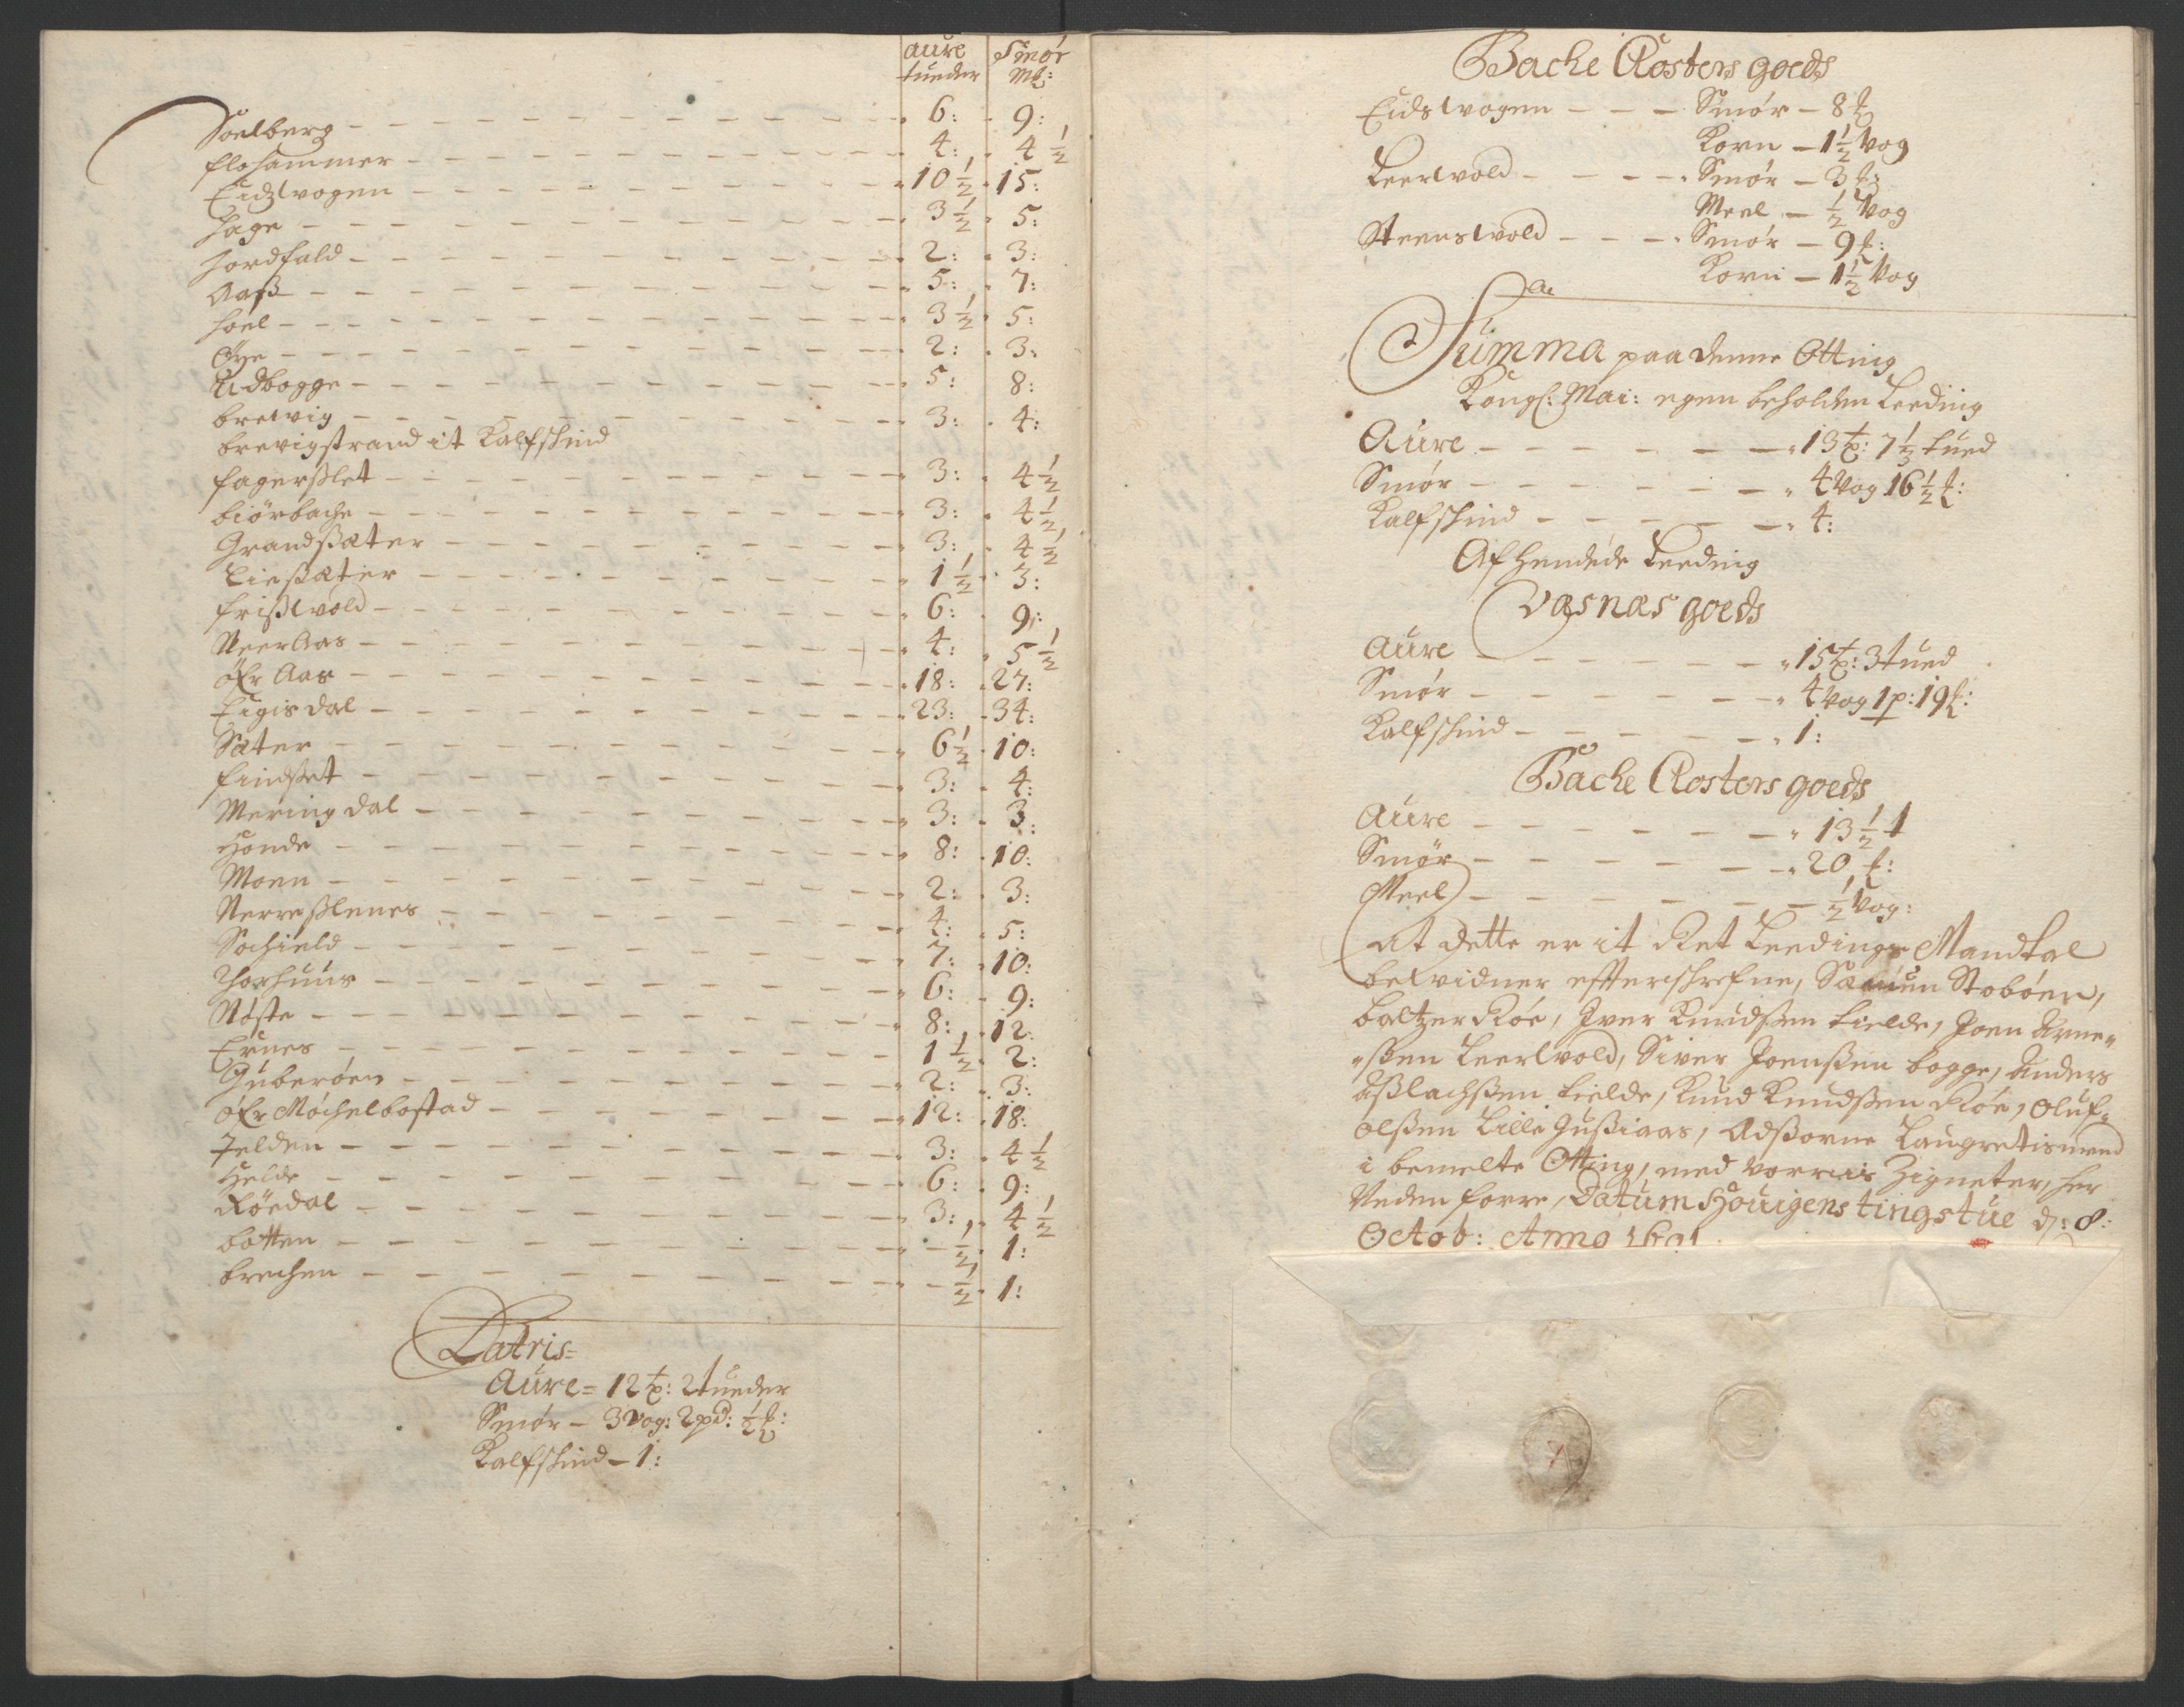 aure Smör
tueder Mk:
Soelberg – – 6: 9:
flohammer – – 4: 4 1/2
Eidzvogen – – 10 1/2 15:
Hage – – 3 1/2 5:
Jordfald – – 2: 3:
Aaß – – 5: 7:
Hoel – – 3 1/2 5:
Øye – – 2: 3:
Udbogge – – 5: 8:
bredvig – – 3: 4:
brevigstrand it Kalfskind
fagerßlet – – 3: 4 1/2
biörbache – – 3: 4 1/2
Grandßæter – – 3: 4 1/2
Ließæter – – 1 1/2 3:
frißvold – – 6: 9:
Neer Aas – – 4: 5 1/2
öfr Aas – – 18: 27:
Eigisdal – – 23: 34:
Sæter – – 6 1/2 10:
findset – – 3: 4:
Meringdal – – 3: 3:
Honde – – 8: 10:
Moen – – 2: 3:
Nerreßlenes – – 4: 5:
Sochield – – 7: 10:
Thorhuus – – 6: 9:
Nöste – – 8: 12:
Ernes – – 1 1/2 2:
Guberöen – – 2: 3:
öfr Möchelbostad – – 12: 18:
Jelden – – 3: 4 1/2
Helde – – 6: 9:
Röedal – – 3: 4 1/2
botten – – 1/2 1:
brechen – – 1/2 1:
Latris=
Aure = 12 t: 2 tueder
Smör – 3 Vog: 2 pd: 1/2 t:
Kalfskind – 1:
Bache Closters goeds
Eidsvogen – – Smör – 8 t
Korn – 1 1/2 Vog
Leervold – – Smör – 3 t
Meel – 1/2 Vog
Steensvold – – Smör – 9 t:
Korn – 1 1/2 Vog
Summa paa denne Otting
Kongl: Mai: egen beholden Leeding
Aure – – 13 t: 7 1/2 tued
Smör – – 4 Vog 16 1/2 t:
Kalfskind – – 4:
Afhendede Leeding
Væsnæs goeds
Aure – – 15 t: 3 tued
Smör – – 4 Vog 1 p: 19 t:
Kalfskind – – 1:
Bache Closters goeds
Aure – – 13 1/2 t
Smör – – 20 t:
Meel – – 1/2 Vog:
At dette er it Ret Leedings Mandtal
bevidner effterskrefne, Stoböen,
baltzer Röe, Iver Knudßen tielde, Joen Arne-
-ßen Leervold, Siver Joenßen bogge, Anders
Aßlachßen tielde, Knud Knudßen Röe, Oluf
Olßen Lille Gußiaas, Adßorne Laugrettismend
i bemelte Otting, med vorres Zigneter, her
Neden forre, Datum Houigens tingstue d: 8:
Octob: Anno 1691